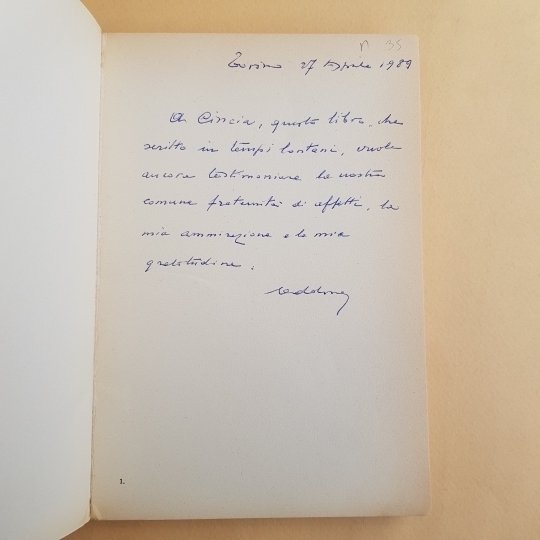 n 35
Torino 27 Aprile 1989
A Cincia, questo libro, che
scritto in tempi lontani, vuole
ancora testimoniare la nostra
comune fraternità di affetti, la
mia ammirazione e la mia
gratitudine.
1.